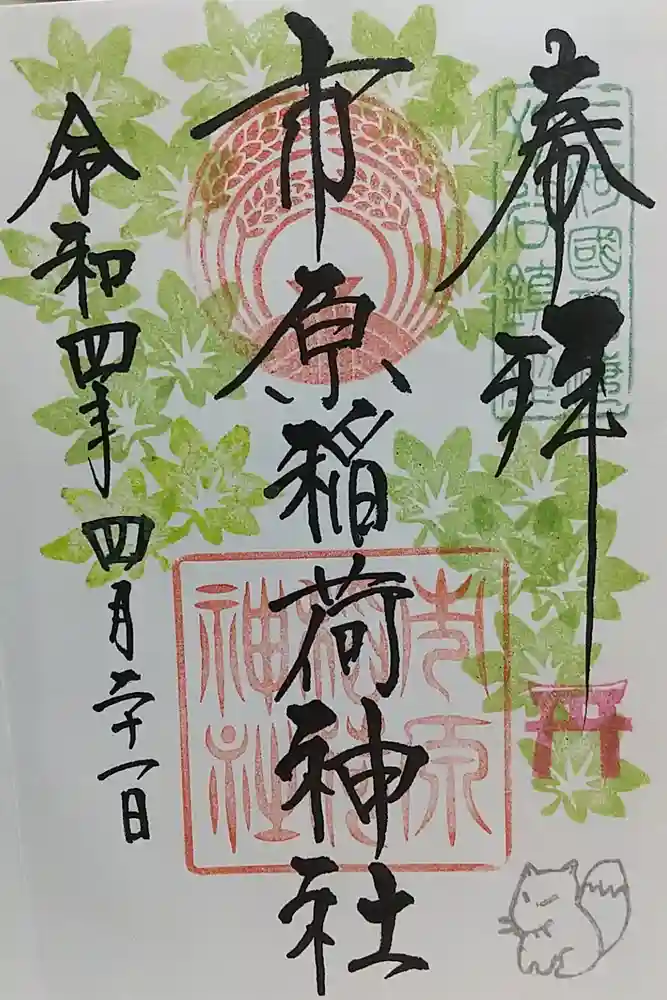 奉拝
市原稲荷神社
令和四年四月二十一日
市原
稲荷
神社